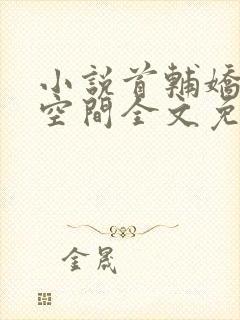 小說首輔嬌
空間全文免
金晟